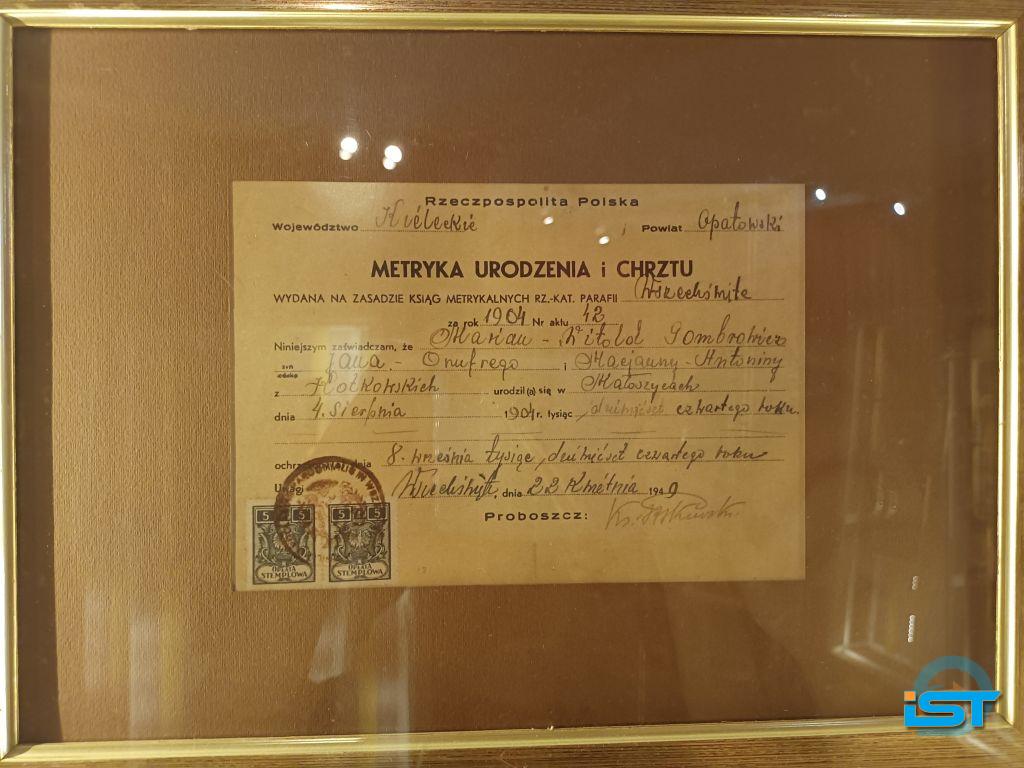 Rzeczpospolita Polska
Województwo Kieleckie Powiat Opatowski
METRYKA URODZENIA i CHRZTU
WYDANA NA ZASADZIE KSIĄG METRYKALNYCH RZ.-KAT. PARAFII Wszechświęte
za rok 1904 Nr aktu 42
Niniejszym zaświadczam, że Marian - Witold Gombrowicz
syn córka Jana - Onufrego i Marjanny - Antoniny
z Kotkowskich urodził(a) się w Małoszycach
dnia 4. Sierpnia 1904 r. tysiąc dziewięćset czwartego roku.
dnia 8. września tysiąc dziewięćset czwartego roku
Uwagi Wszechświęte, dnia 22 Kwietnia 1949
Proboszcz: Ks.
5 5 5 5
OPŁATA STEMPLOWA OPŁATA STEMPLOWA
iST